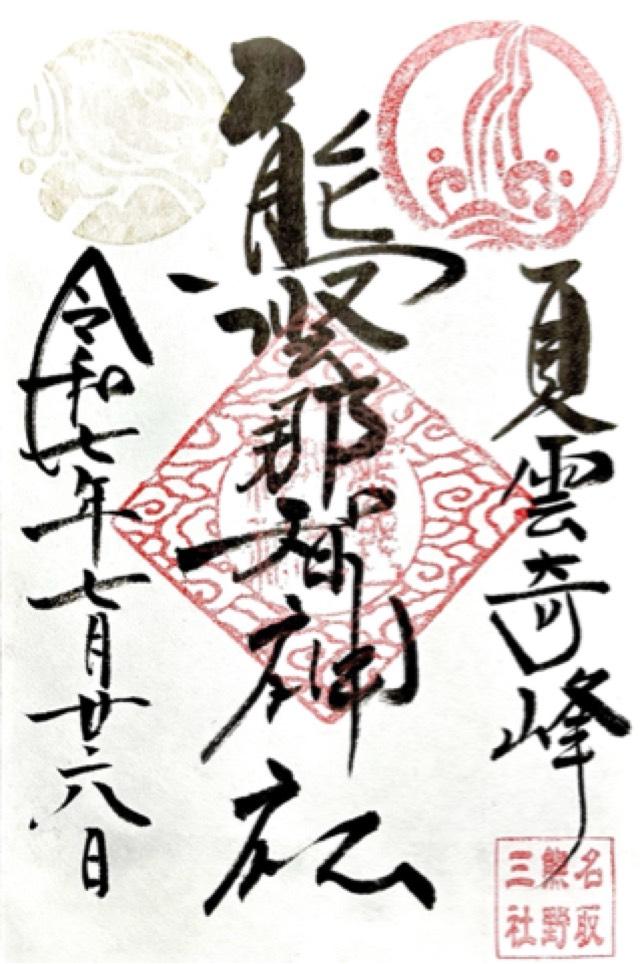 夏雲奇峰
熊野那智神社
令和七年七月廿六日
名取
熊野
三社